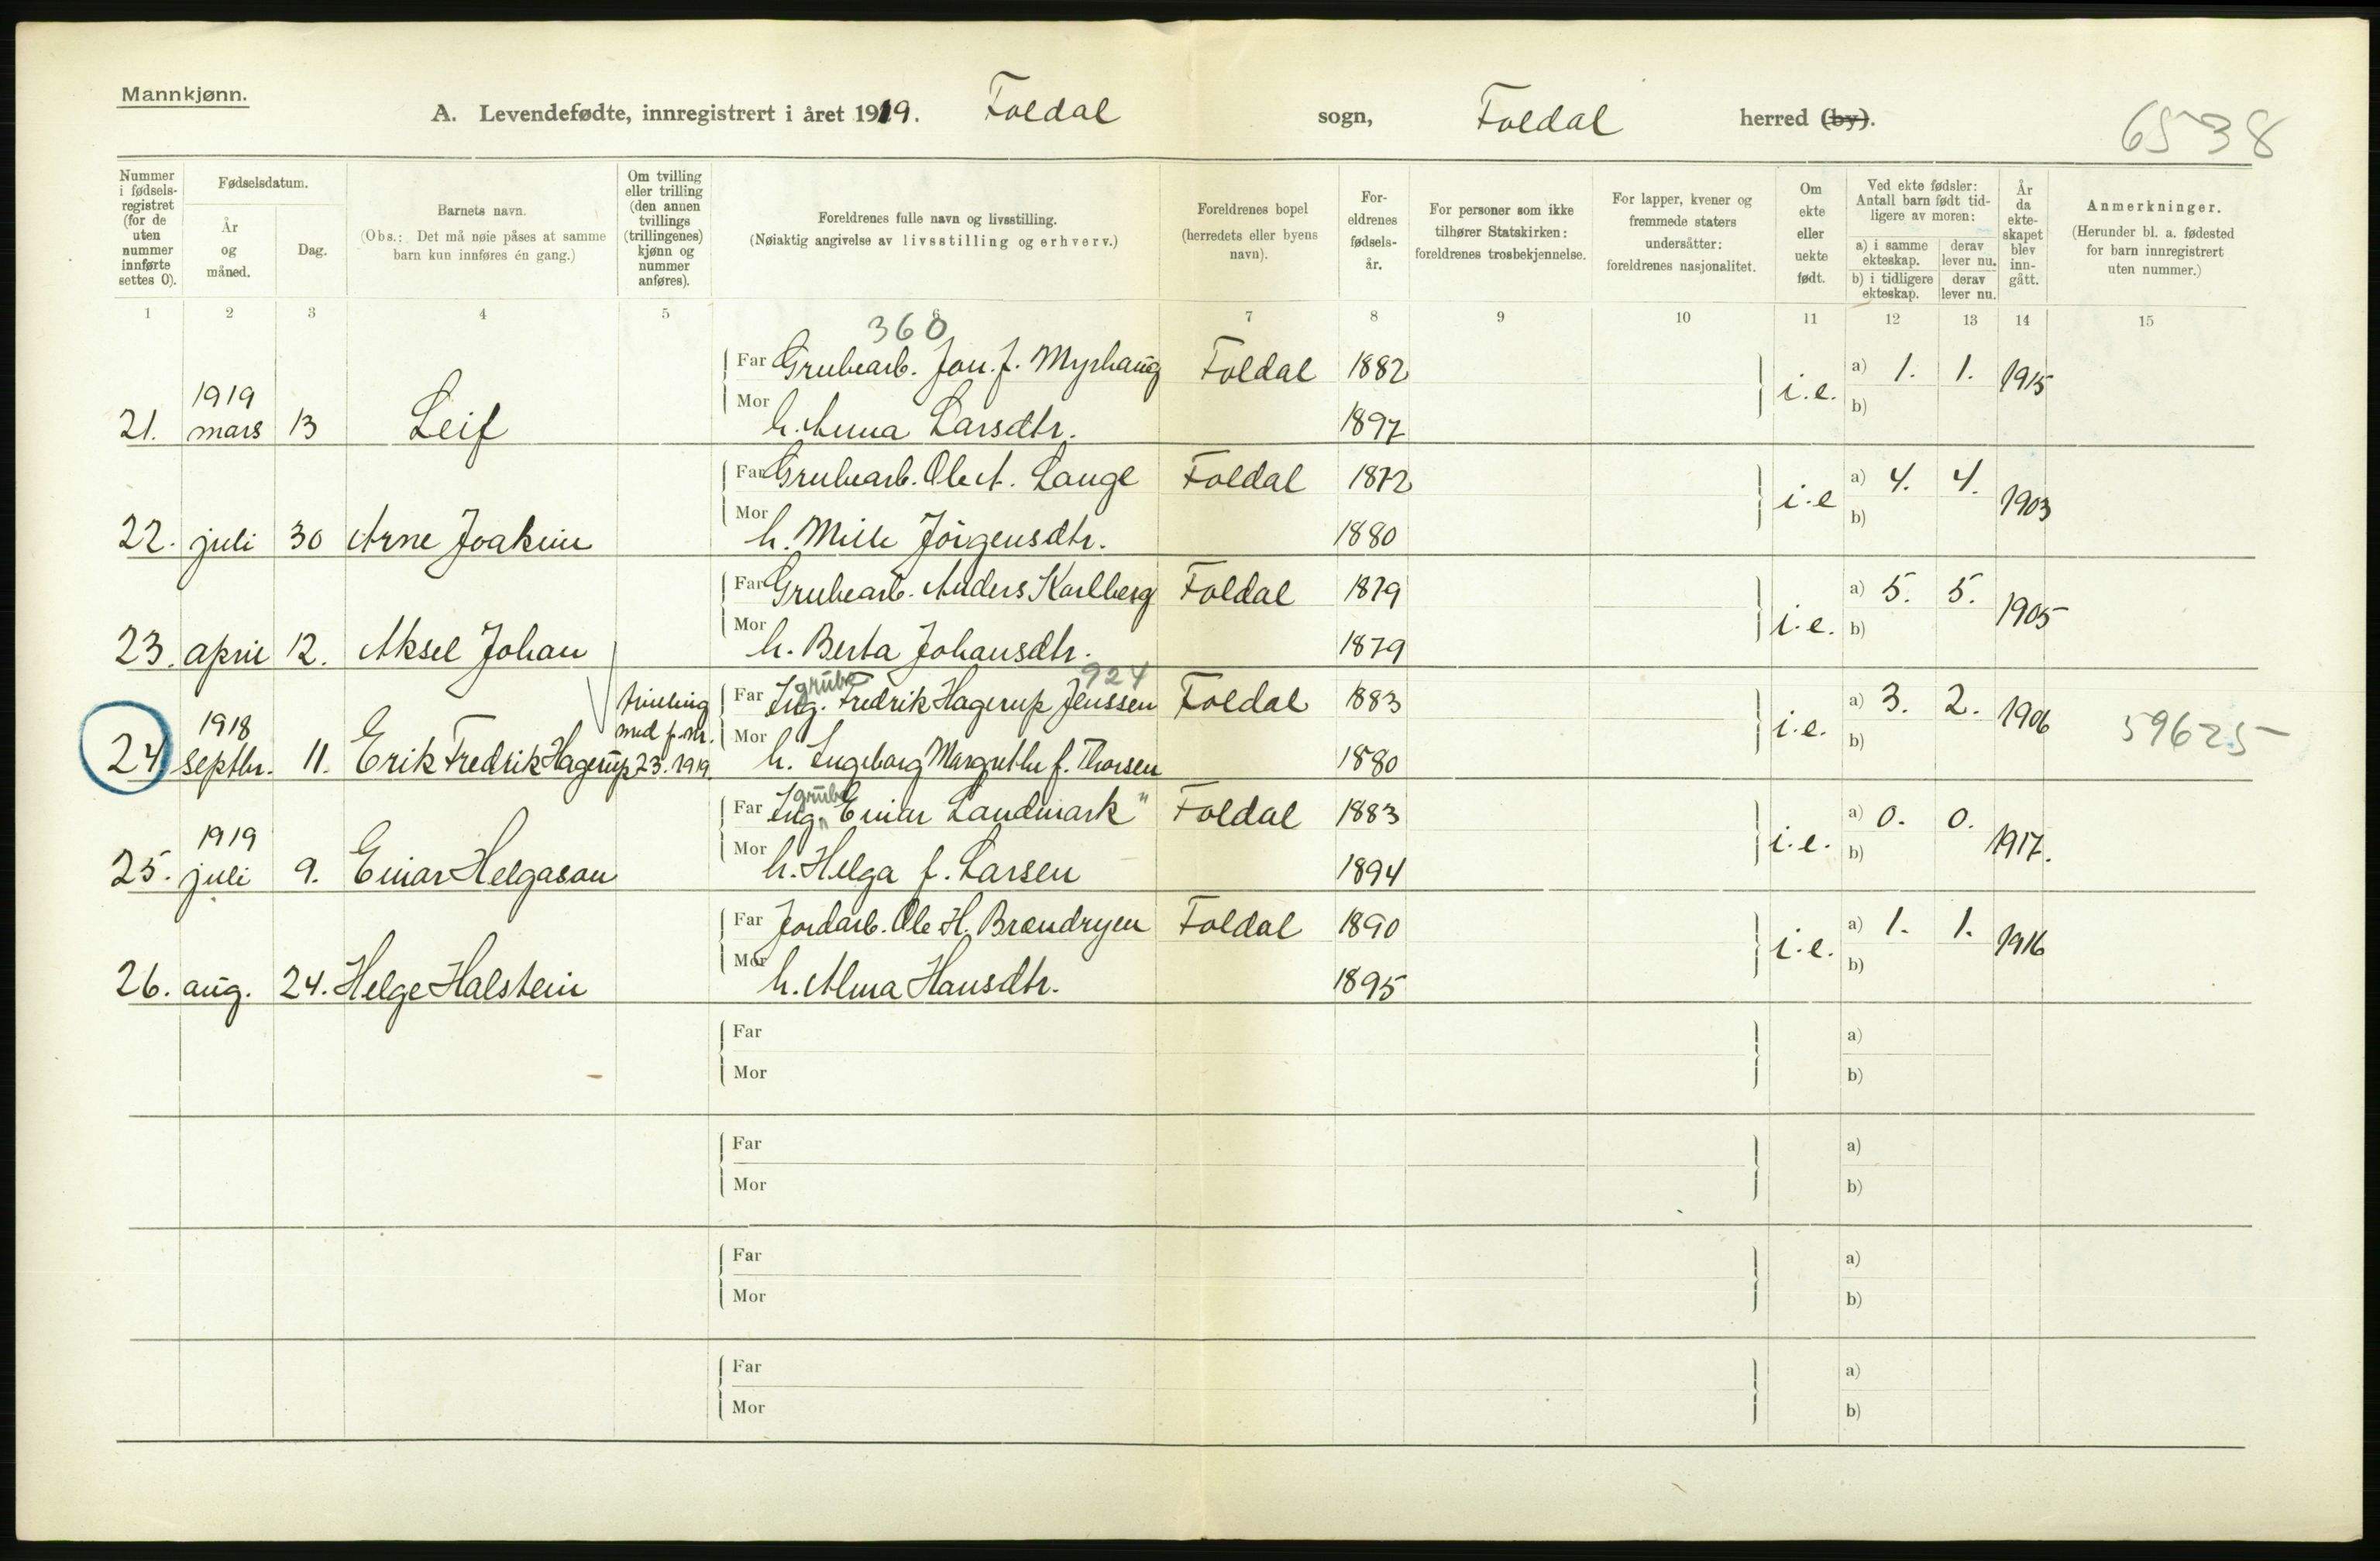 Mannkjønn.
A. Levendefødte, innregistrert i året 1919. Foldal sogn, Foldal herred (by).
6538
Nummer i fødselsregistret (for de uten nummer innførte settes 0).
Fødselsdatum.
År og måned.
Dag.
Barnets navn.
(Obs.: Det må nøie påses at samme barn kun innføres én gang.)
Om tvilling eller trilling (den annen tvillings (trillingenes) kjønn og nummer anføres).
Foreldrenes fulle navn og livsstilling.
(Nøiaktig angivelse av livsstilling og erhverv.)
Foreldrenes bopel (herredets eller byens navn).
Foreldrenes fødselsår.
For personer som ikke tilhører Statskirken: foreldrenes trosbekjennelse.
For lapper, kvener og fremmede staters undersåtter: foreldrenes nasjonalitet.
Om ekte eller uekte født.
Ved ekte fødsler: Antall barn født tidligere av moren:
a) i samme ekteskap. derav lever nu.
b) i tidligere ekteskap. derav lever nu.
År da ekteskapet blev inngått.
Anmerkninger.
(Herunder bl. a. fødested for barn innregistrert uten nummer.)
1 2 3 4 5 6 7 8 9 10 11 12 13 14 15
360
Far Grubearb. Jon. J. Myrhaug Foldal 1882 a) 1. 1. 1915
1919 i.e.
21. mars 13 Leif Mor h. Anna Larsdtr. 1897 b)
Far Grubearb. Ole A. Lange Foldal 1872 a) 4. 4. 1903
i.e
22. juli 30 Arne Joakim Mor h. Mille Jörgensdtr. 1880 b)
Far Grubearb. Anders Karlberg Foldal 1879 a) 5. 5. 1905
i.e.
23. april 12. Aksel Johan Mor h. Berta Johansdtr. 1879 b)
grube 924
tvilling Far Ing. Fredrik Hagerup Jenssen Foldal 1883 a) 3. 2. 1906
1918 med p. nr. i.e. 59625
24 septbr. 11. Erik Fredrik Hagerup 23. 1919 Mor h. Ingeborg Margrethe f. Thorsen 1880 b)
grube
Far Ing. "Einar Landmark" Foldal 1883 a) 0. 0.
1919 i.e. 1917.
25. juli 9. Einar Helgason Mor h. Helga f. Larsen 1894 b)
Far Jordarb. Ole H. Brendryen Foldal 1890 a) 1. 1. 1916
i.e.
26. aug. 24. Helge Halstein Mor h. Alma Hansdtr. 1895 b)
Far a)
Mor b)
Far a)
Mor b)
Far a)
Mor b)
Far a)
Mor b)